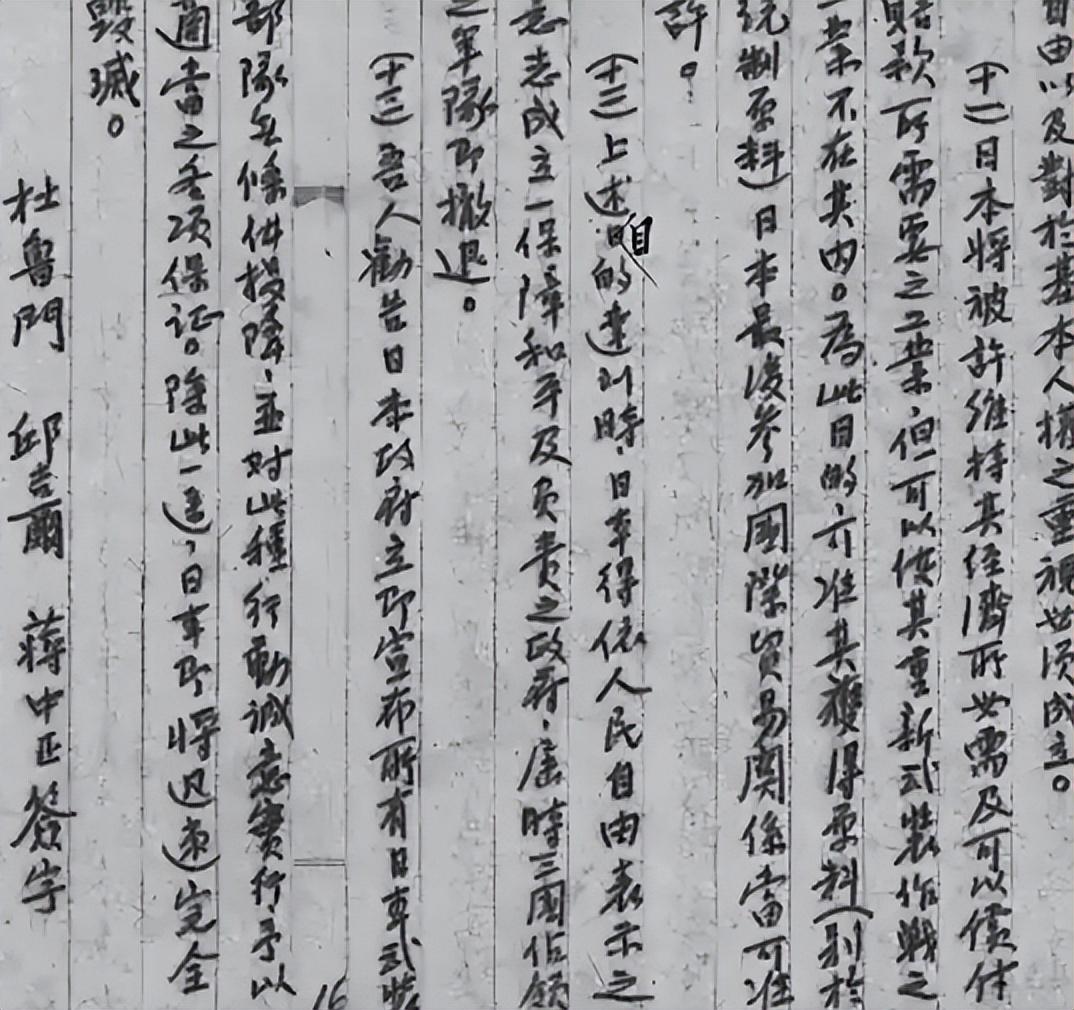 自由以及對於基本人權之重視必須成立。
(十一)日本將被許維持其經濟所必需及可以償付
賠款所需要之工業,但可以使其重新武裝作戰之
工業不在其內。為此目的,可准其獲得原料(別於
統制原料)日本最後參加國際貿易關係當可准
許。
(十二)上述目的達到時,日本得依人民自由表示之
意志成立一保障和平及負責之政府,屆時三國佔領
之軍隊即撤退。
(十三)吾人勸告日本政府立即宣布所有日本武裝
部隊無條件投降,並對此種行動誠意實行予以
適當之各項保証。除此一途,日本即將迅速完全
毀滅。
杜魯門 邱吉爾 蔣中正簽字
16